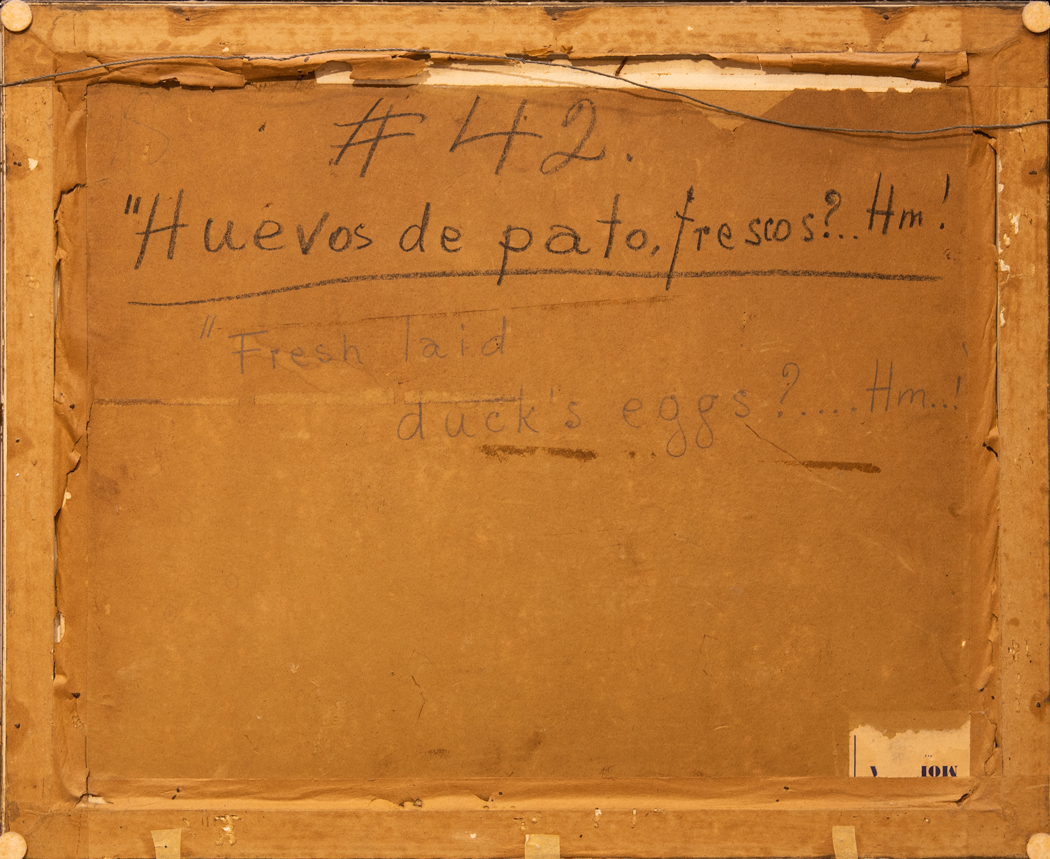 # 42.
"Huevos de pato, frescos?.. Hm!
"Fresh laid
duck's eggs?.... Hm..!